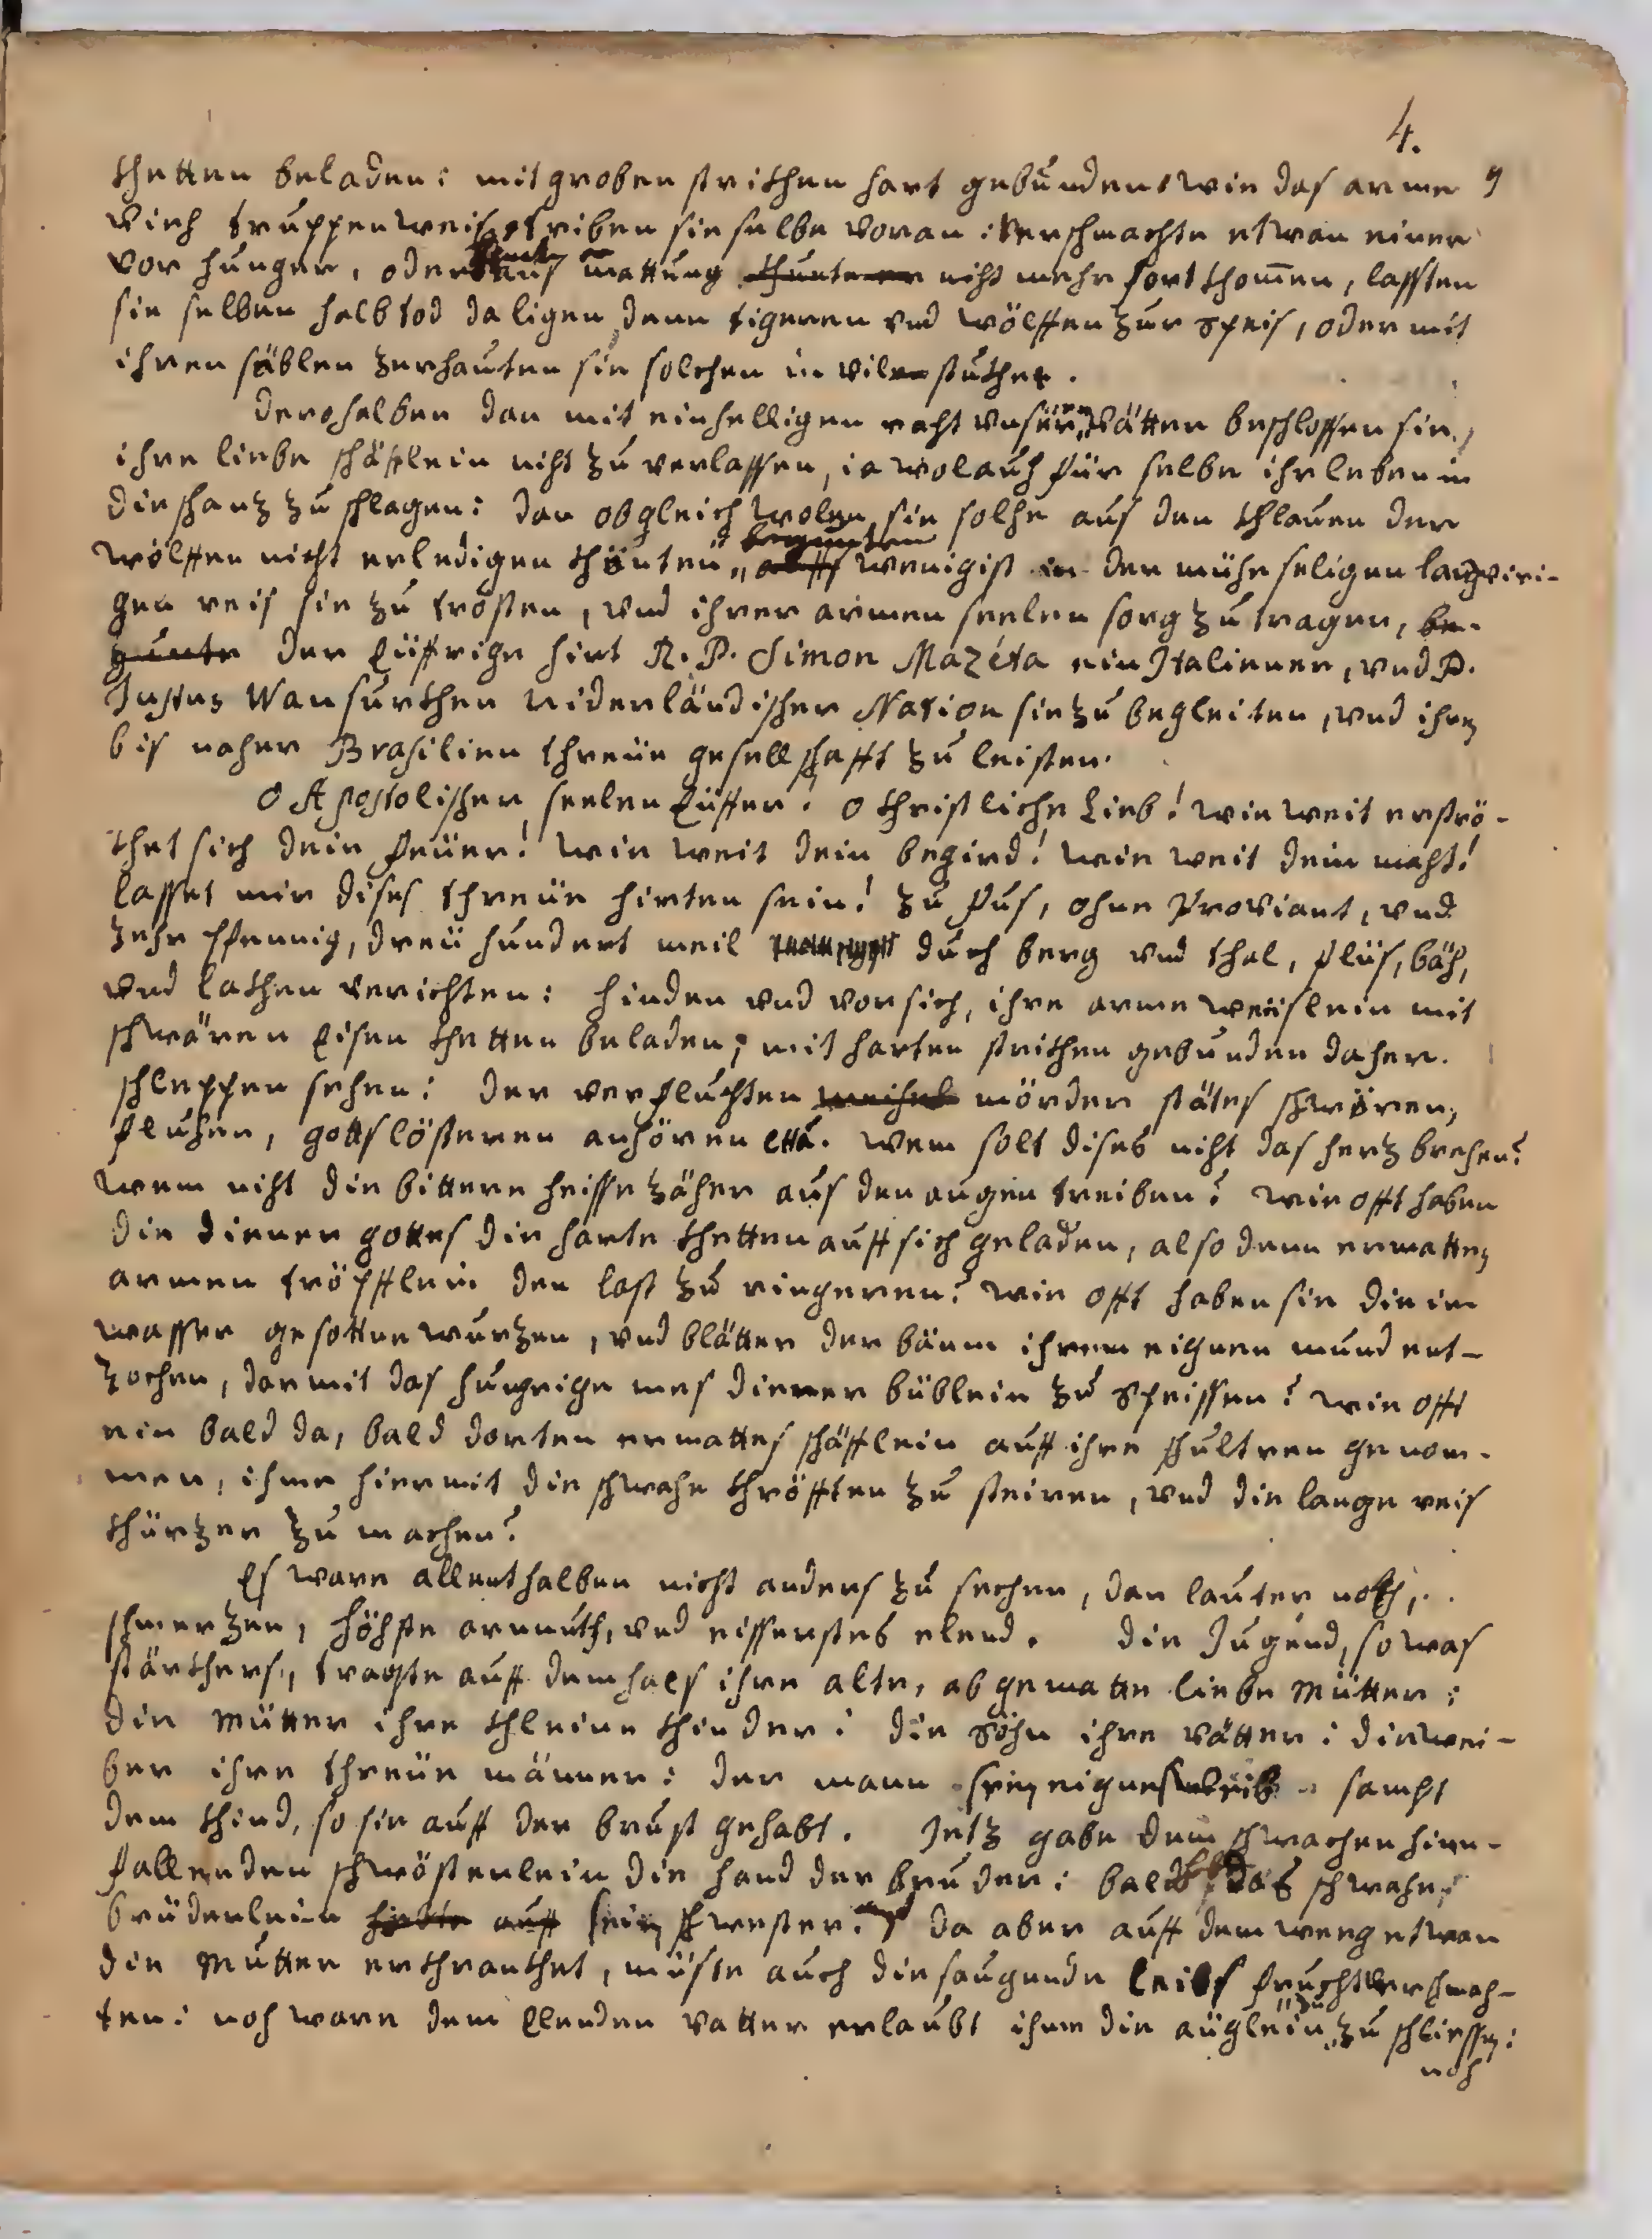 4.
khetten beladen: mit groben strikhen hart gebunden, wie das arme 9
Vieh truppenweis triben sie selbe voran: verschmachte etwan einer
vor hunger, oder aus mattung khunte er niht mehr fort khom̄en, lassten
sie selben halb tod da ligen denn tigeren vnd wölffen zur speis, oder mit
ihren säblen zerhauten sie solchen in vile stukhe.
Derohalben dan mit einhelligen raht vnseren vätter beschlossen sie,
ihre liebe schäflein niht zu verlassen, ia wol auch für selbe ihr leben in
die schantz zu schlagen: dan obgleich wolen sie solhe aus den khlauen der
wölffen nicht erledigen khönten, begunten wenigist in der müheseligen langwiri-
gen reis sie zu trösten, vnd ihrer armen seelen sorg zu tragen, be-
gunte der Eüffrige hirt R. P. Simon Mazéta ein Italiener, vnd P.
Justus Wansurkhen niderländischer Nation sie zu begleiten, vnd ihnen
bis naher Brasilien threüe gesellschafft zu leisten.
O Apostolischer seelen Eüffer! o Christliche Lieb! wie weit erströ-
khet sich dein feüer! wie weit dein begird! wie weit dein maht!
lasset mir dises threüe hirten sein! zu fus, ohne Proviant, vnd
zehr Pfennig, dreü hundert meil durch berg vnd thal, flüs, bäch,
vnd lakhen verichten: hinden vnd vor sich, ihre arme weislein mit
schwären Eisen khetten beladen, mit harten strikhen gebunden daher
schleppen sehen: der verfluchten mörder stätes schwören,
fluhen, gottslösteren anhören etta. wem solt dises niht das hertz brehen?
wem niht die bittere heisse zäher aus den augen treiben? wie offt haben
die diener gottes die harte khetten auff sich geladen, also denn ermatten
armen tröpfflein den last zu ringeren? wie offt haben sie die im
wasser gesottne wurzen, vnd blätter der bäum ihrem eignen mund ent-
zochen, darmit das hungerige mes diener büblein zu speissen? wie offt
ein bald da, bald dorten ermattes schäfflein auff ihre schultren genom-
men, ihme hiermit die schwahe khröfften zu steiren, vnd die lange reis
khürzer zu machen?
Es ware allenthalben nicht anders zu sechen, dan lauter noth,
schmerzen, höhste armuth, vnd eisserstes elend. Die Jugend, so was
stärkhers, tragte auff dem hals ihre alte, abgematte liebe Mütter:
die Mütter ihre khleine khinder: die Söhn ihre vätter: die wei-
ber ihre threüe männer: der mann sein eignes weib sampt
dem khind, so sie auff der brust gehabt. Jetz gabe dem schwachen hin-
fallenden schwösterlein die hand der bruder: bald das schwahe
brüderlein hebte auff sein schwester. da aber auff dem weeg etwan
die Mutter erkhrankhet, müste auch die saugende leibs frucht verschmah-
ten: noh ware dem Elenden vatter erlaubt ihme die äuglein zu schliessen:
noh